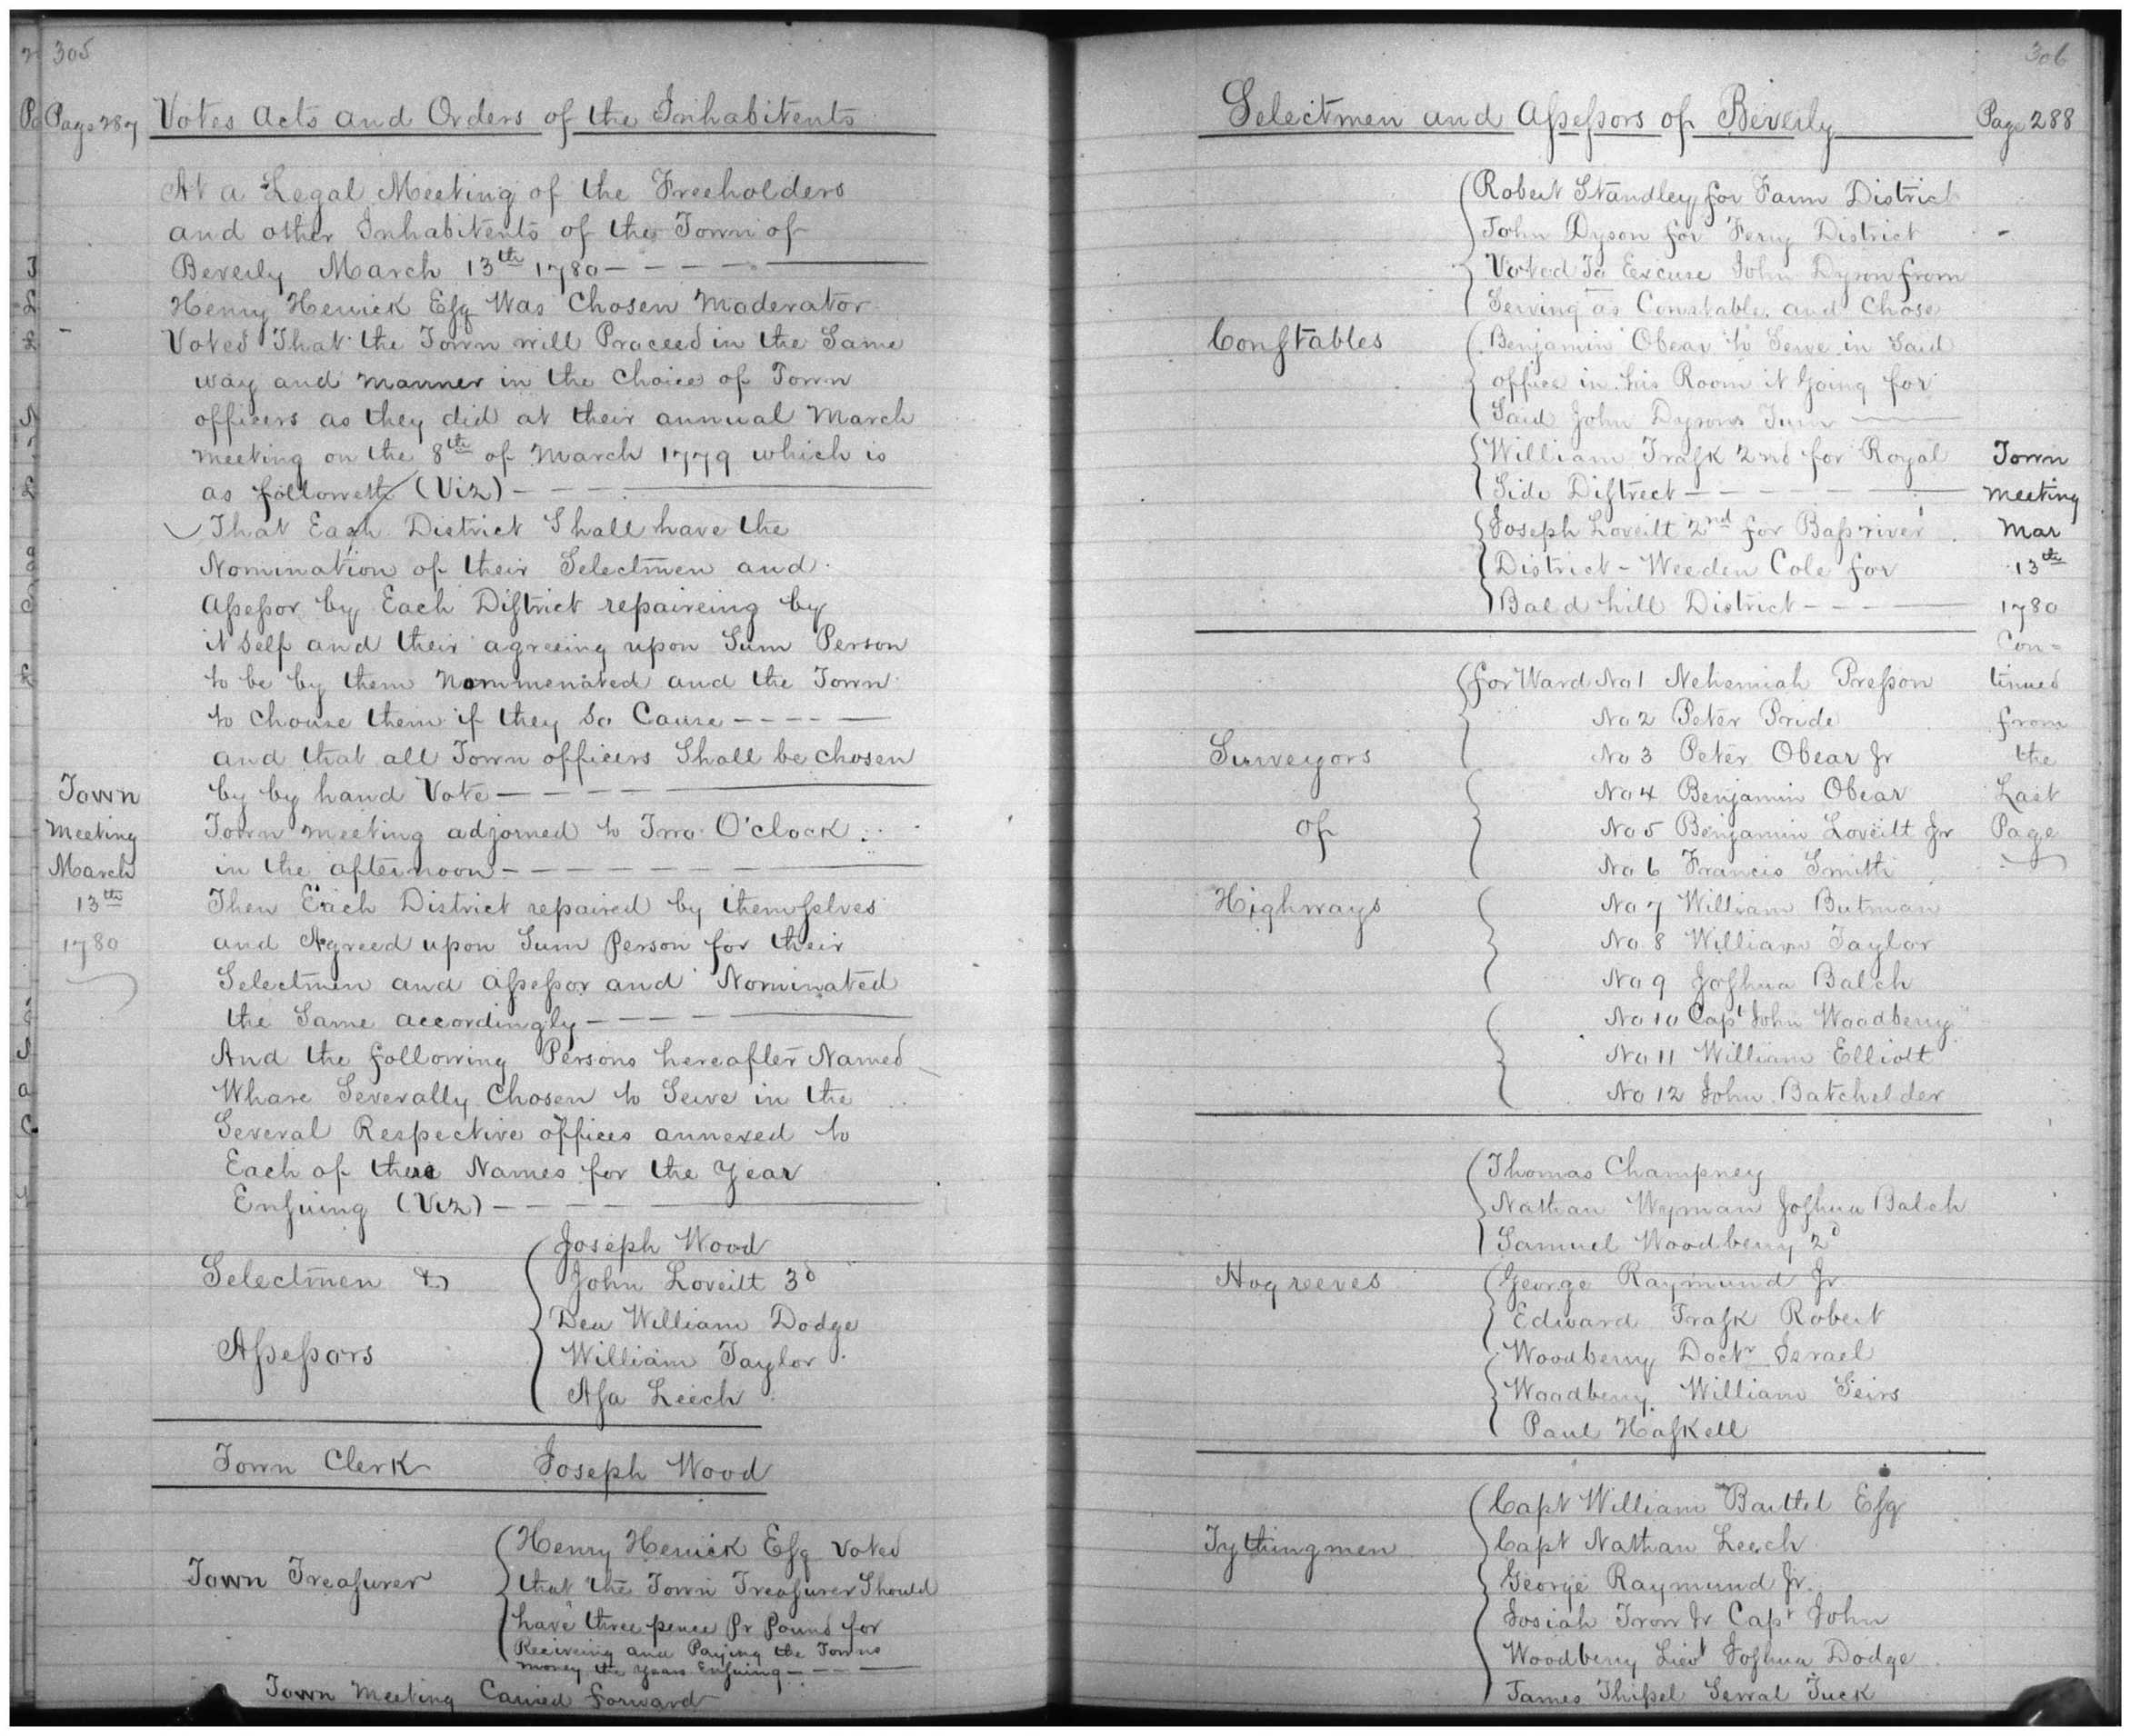 305
Page 287
Votes Acts and Orders of the Inhabitents
At a Legal Meeting of the Freeholders
and other Inhabitents of the Town of
Beverly March 13th 1780
Henry Herrick Esq Was Chosen Moderator
Voted That the Town will Proceed in the Same
way and manner in the Choice of Town
officers as they did at their annual March
meeting on the 8th of March 1779 which is
as followeth (Viz)
That Each District Shall have the
Nomination of their Selectmen and
Assessor by Each District repaireing by
it Self and their agreeing upon Sum Person
to be by them Nommenated and the Town
to Chouse them if they So Cause
and that all Town officers Shall be chosen
by by hand Vote
Town meeting adjorned to Two O'clock
in the afternoon
Then Each District repaired by themselves
and Agreed upon Sum Person for their
Selectmen and Assessor and Nominated
the Same accordingly
And the following Persons hereafter Named
Whare Severally Chosen to Serve in the
Several Respective offices annexed to
Each of there Names for the Year
Ensuing (Viz)
Town
Meeting
March
13th
1780
Selectmen &
Assessors
Joseph Wood
John Loveitt 3d
Dea William Dodge
William Taylor
Asa Leech
Town Clerk Joseph Wood
Town Treasurer
Henry Herrick Esq Voted
that the Town Treasurer Should
have three pence Pr Pound for
Receiveing and Paying the Towns
money the years Ensuing
Town Meeting Carried forward
306
Selectmen and Assessors of Beverly
Page 288
Constables
Robert Standley for Farm District
John Dyson for Ferry District
Voted To Excuse John Dyson from
Serving as Constable and Chose
Benjamin Obear to Serve in Said
office in his Room it Going for
Said John Dysons Turn
William Trask 2nd for Royal
Side District
Joseph Loveitt 2nd for Bassriver
District - Weeden Cole for
Bald hill District
Town
meeting
Mar
13th
1780
Con=
tinued
from
the
Last
Page
Surveyors
of
Highways
for Ward No 1 Nehemiah Presson
No 2 Peter Pride
No 3 Peter Obear Jr
No 4 Benjamin Obear
No 5 Benjamin Loveitt Jr
No 6 Francis Smith
No 7 William Butman
No 8 William Taylor
No 9 Joshua Balch
No 10 Capt John Woodberry
No 11 William Elliott
No 12 John Batchelder
Hogreeves
Thomas Champney
Nathan Wyman Joshua Balch
Samuel Woodberry 2d
George Raymund Jr
Edward Trask Robert
Woodberry Doctr Israel
Woodberry William Seirs
Paul Haskell
Tythingmen
Capt William Barttel Esq
Capt Nathan Leech
George Raymund Jr
Josiah Trow Jr Capt John
Woodberry Lieut Joshua Dodge
James Thissel Sewal Tuck